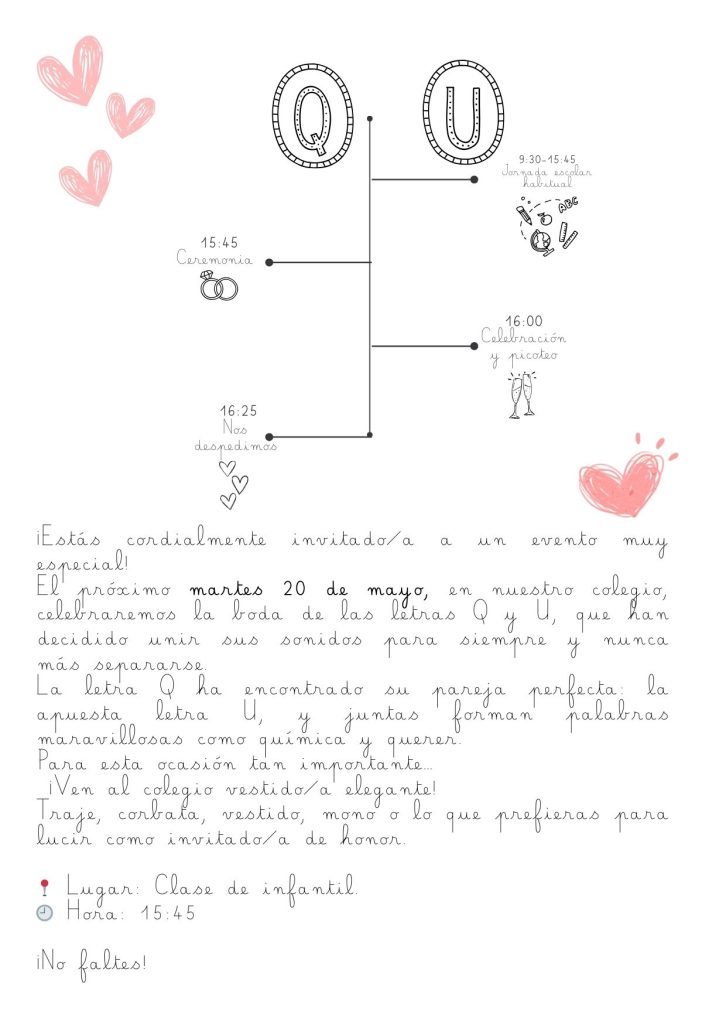 Q U
9:30-15:45
Jornada escolar
habitual
ABC
15:45
Ceremonia
16:00
Celebración
y picoteo
16:25
Nos
despedimos
¡Estás cordialmente invitado/a a un evento muy
especial!
El próximo martes 20 de mayo, en nuestro colegio,
celebraremos la boda de las letras Q y U, que han
decidido unir sus sonidos para siempre y nunca
más separarse.
La letra Q ha encontrado su pareja perfecta: la
apuesta letra U, y juntas forman palabras
maravillosas como química y querer.
Para esta ocasión tan importante...
¡Ven al colegio vestido/a elegante!
Traje, corbata, vestido, mono o lo que prefieras para
lucir como invitado/a de honor.
📍 Lugar: Clase de infantil.
🕘 Hora: 15:45
¡No faltes!